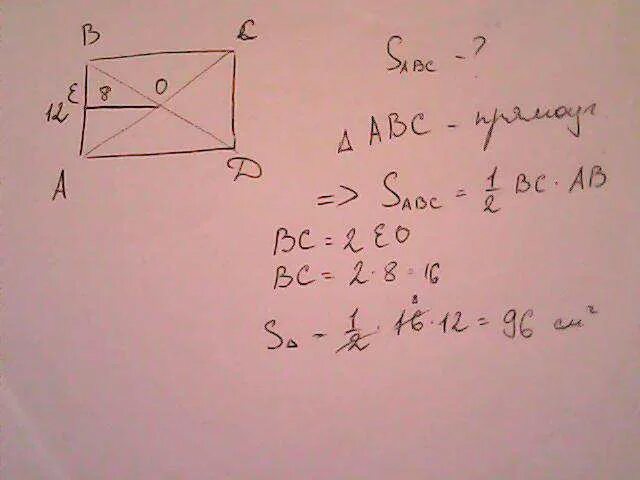 B C
E 8 O
12
A D
S_ABC - ?
Δ ABC - прямоуг
=> S_ABC = 1/2 BC · AB
BC = 2 EO
BC = 2 · 8 = 16
S_Δ = 1/2 · 16 · 12 = 96 см²
8